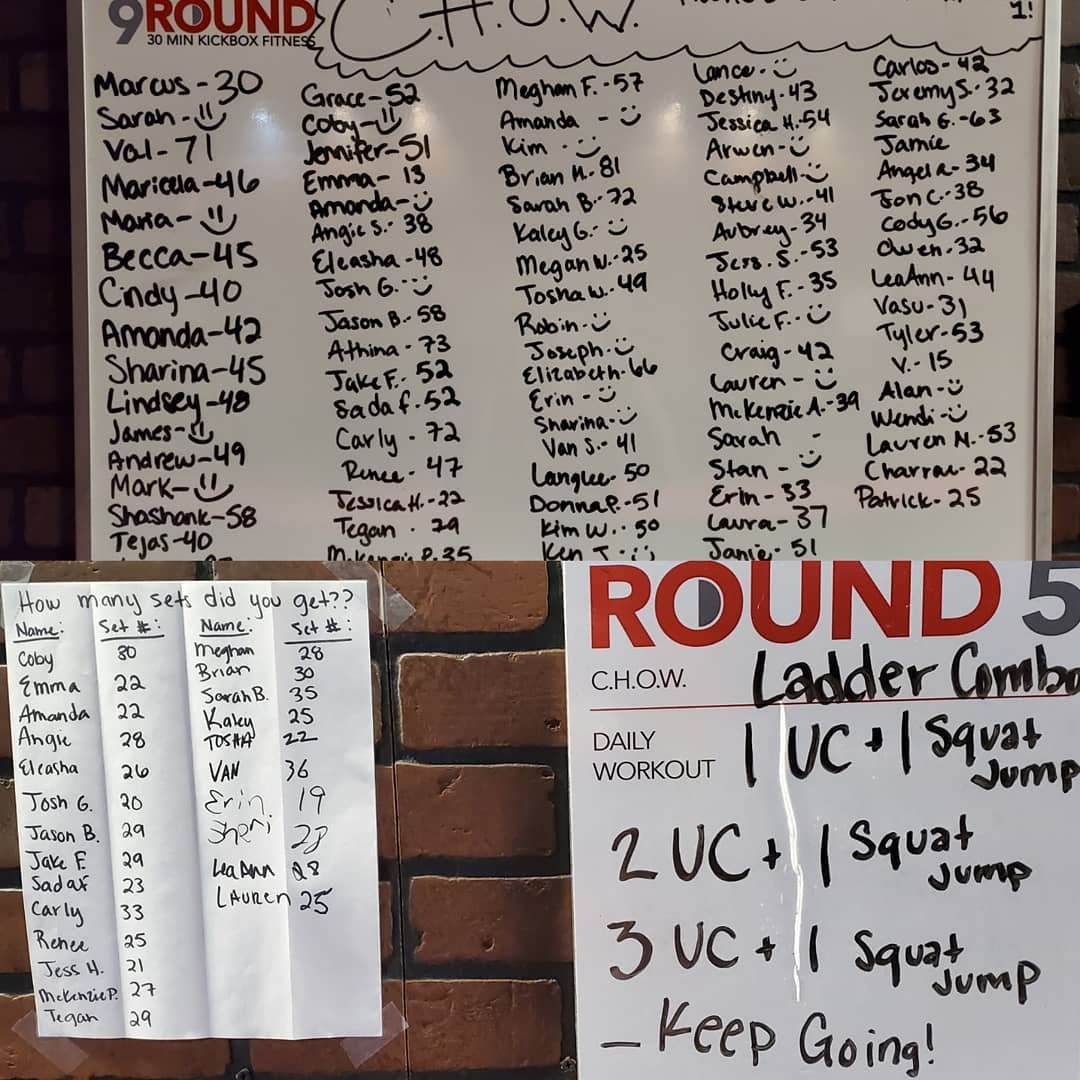 9ROUND
30 MIN KICKBOX FITNESS
C.H.O.W.
1!
Marcus-30
Sarah-
Val-71
Maricela-46
Maria-
Becca-45
Cindy-40
Amanda-42
Sharina-45
Lindsey-48
James-
Andrew-49
Mark-
Shashank-58
Tejas-40
Grace-52
Coby-
Jennifer-51
Emma-13
Amanda-
Angie S.-38
Eleasha-48
Josh G.-
Jason B.-58
Athina-73
Jake F.-52
Sadaf.-52
Carly-72
Renee-47
Jessica H.-22
Tegan-29
McKenzie P.35
Meghan F.-57
Amanda -
Kim-
Brian M.-81
Sarah B.-72
Kaley G.-
Megan W.-25
Tosha W.-49
Robin-
Joseph-
Elizabeth-66
Erin-
Sharina-
Van S.-41
Langlee-50
Donna P.-51
Kim W.-50
Ken T.-
Lance-
Destiny-43
Jessica H.-54
Arwen-
Campbell-
Steve W.-41
Aubrey-34
Jess. S.-53
Holly F.-35
Julie F.-
Craig-42
Lauren-
McKenzie A.-39
Sarah -
Stan-
Erin-33
Laura-37
Janie-51
Carlos-42
Jeremy S.-32
Sarah G.-63
Jamie
Angela-34
Jon C.-38
Cody G.-56
Owen-32
LeaAnn-44
Vasu-31
Tyler-53
V.-15
Alan-
Wendi-
Lauren M.-53
Charrae-22
Patrick-25
How many sets did you get??
Name: Set #: Name: Set #:
Coby 30 Meghan 28
Emma 22 Brian 30
Amanda 22 Sarah B. 35
Angie 28 Kaley 25
Eleasha 26 TOSHA 22
Josh G. 20 VAN 36
Jason B. 29 Erin 19
Jake F. 29 Sheri 28
Sadaf 23 LeaAnn 28
Carly 33 LAUREN 25
Renee 25
Jess H. 21
McKenzie P. 27
Tegan 29
ROUND 5
C.H.O.W. Ladder Combo
DAILY
WORKOUT
1 UC + 1 Squat
Jump
2 UC + 1 Squat
Jump
3 UC + 1 Squat
Jump
- Keep Going!